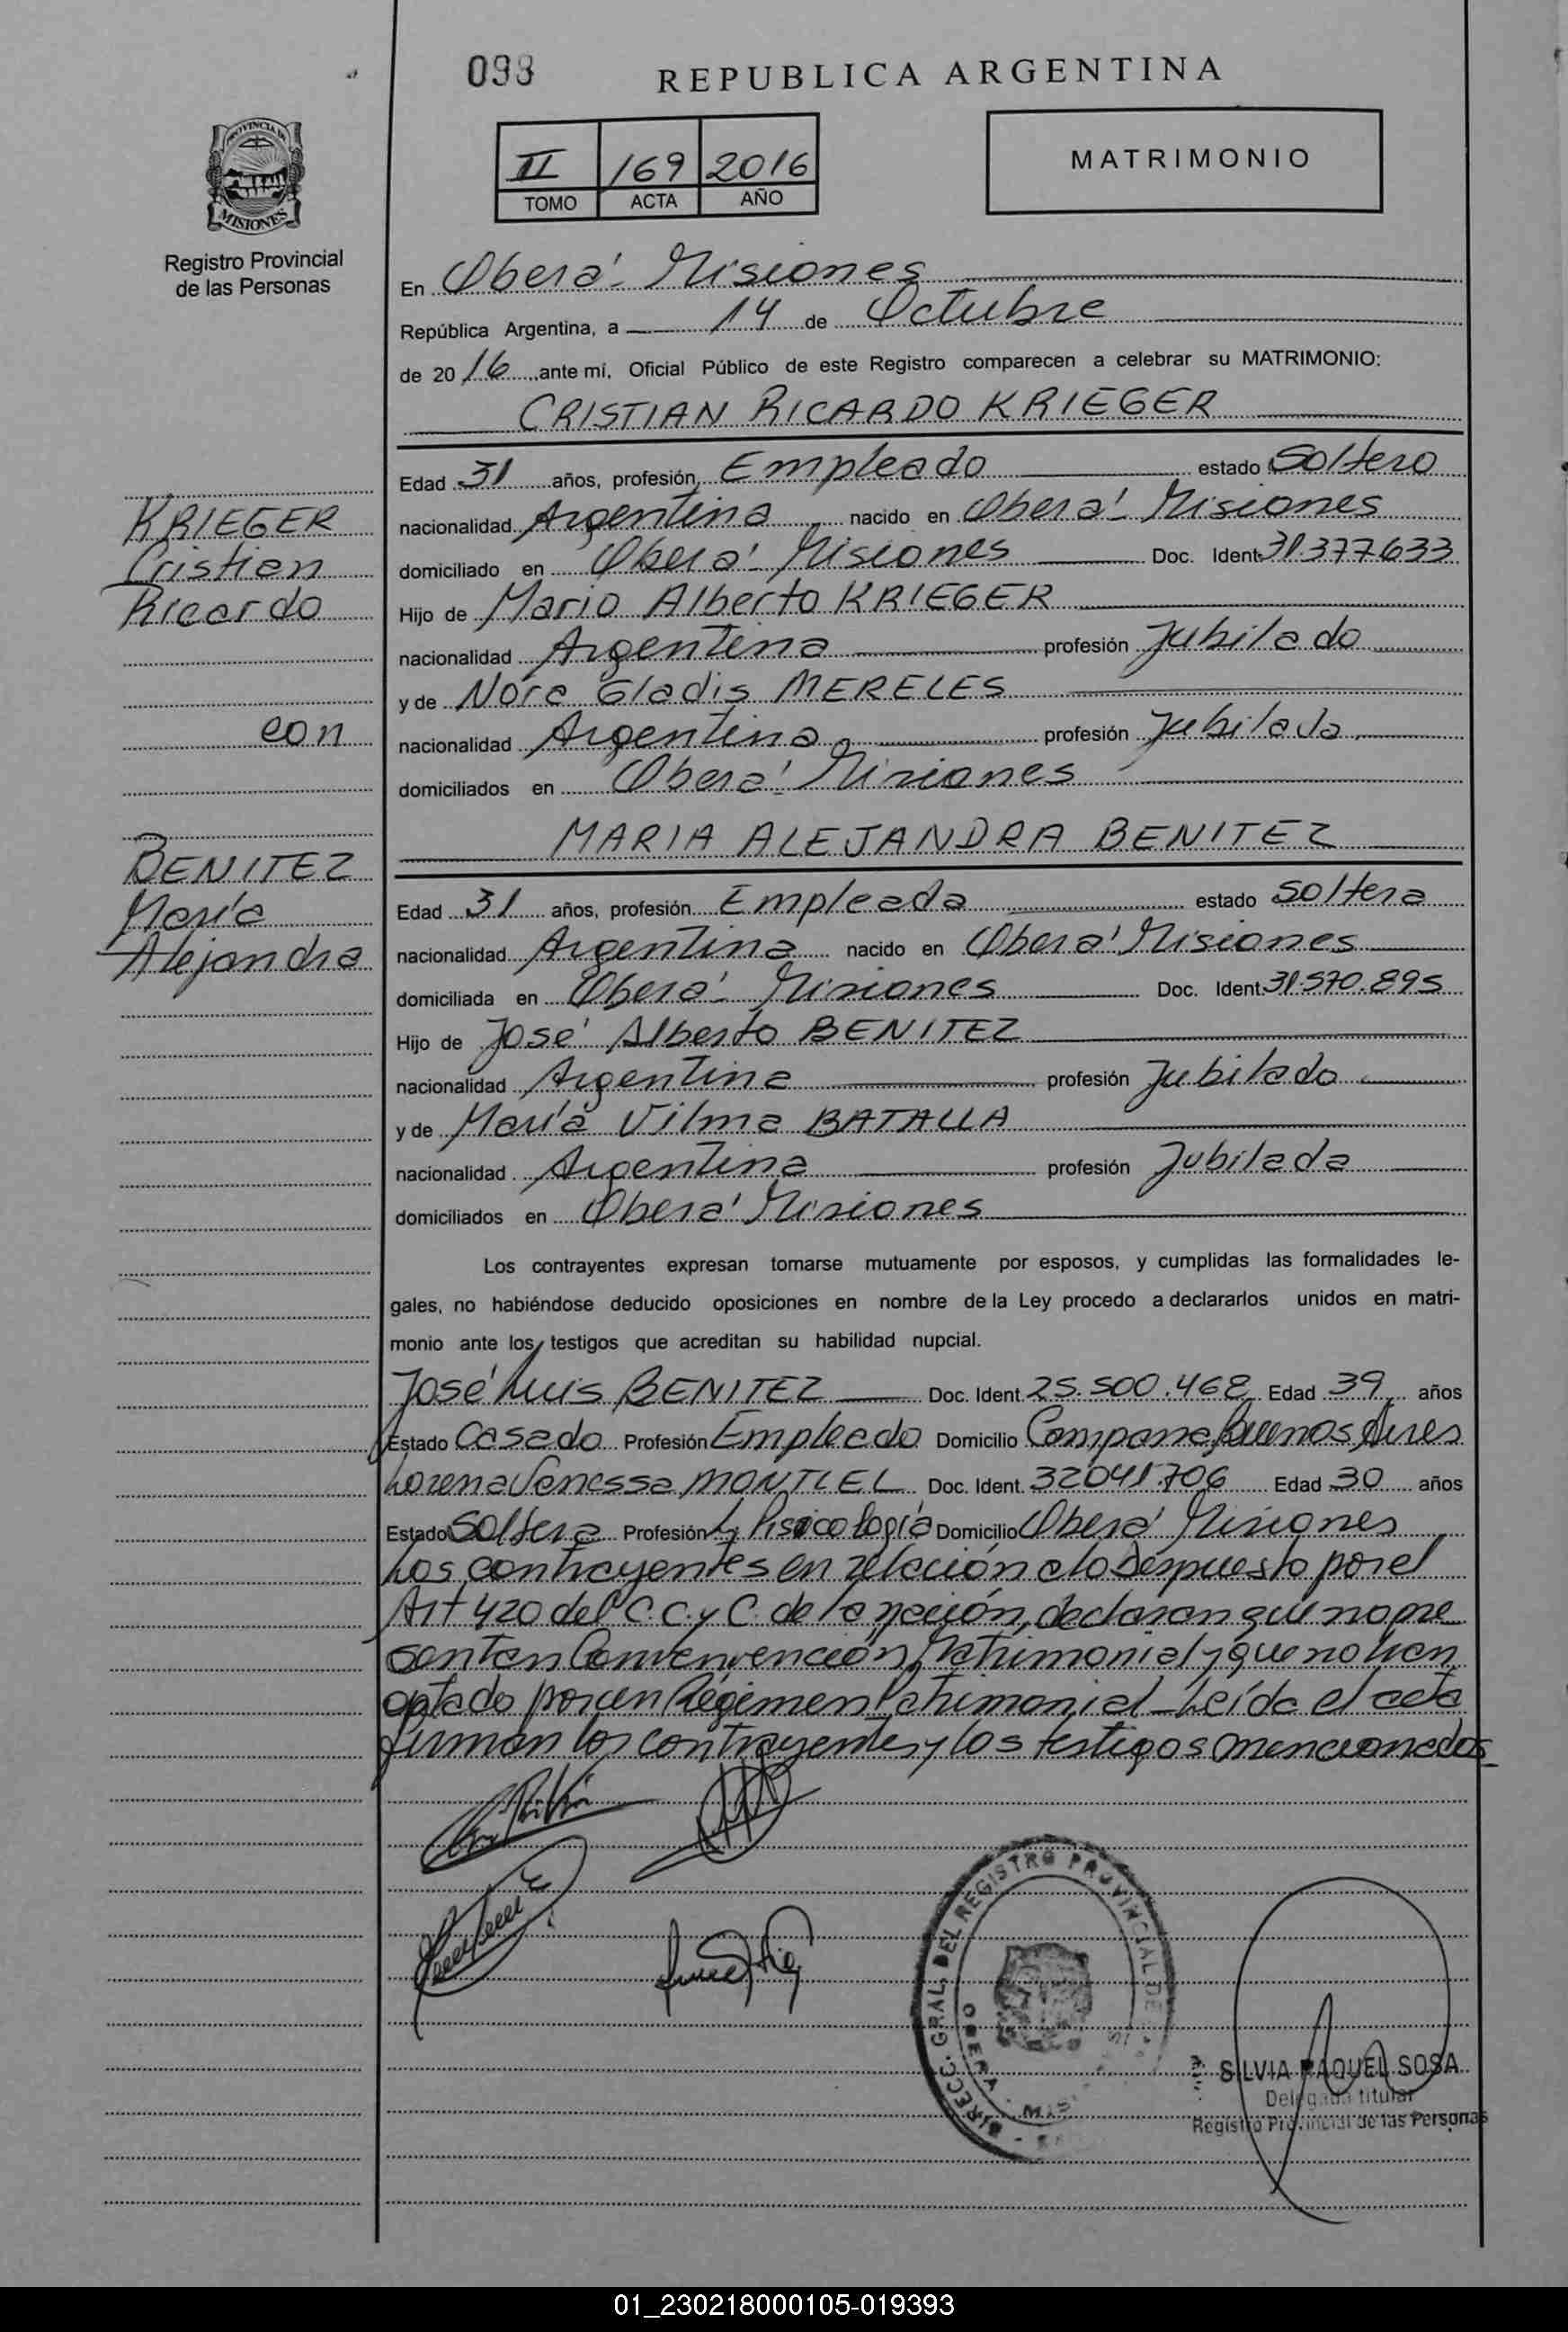 093
REPUBLICA ARGENTINA
PROVINCIA DE
MISIONES
Registro Provincial
de las Personas
II 169 2016
TOMO ACTA AÑO
MATRIMONIO
En Oberá - Misiones
República Argentina, a 14 de Octubre
de 2016 ante mí, Oficial Público de este Registro comparecen a celebrar su MATRIMONIO:
CRISTIAN RICARDO KRIEGER
Edad 31 años, profesión Empleado estado Soltero
KRIEGER
nacionalidad Argentina nacido en Oberá - Misiones
Cristian
domiciliado en Oberá - Misiones Doc. Ident. 31.377.633
Ricardo
Hijo de Mario Alberto KRIEGER
nacionalidad Argentina profesión Jubilado
y de Nora Gladis MERELES
con
nacionalidad Argentina profesión Jubilada
domiciliados en Oberá - Misiones
MARIA ALEJANDRA BENITEZ
BENITEZ
María
Alejandra
Edad 31 años, profesión Empleada estado Soltera
nacionalidad Argentina nacido en Oberá - Misiones
domiciliada en Oberá - Misiones Doc. Ident. 31.570.895
Hijo de José Alberto BENITEZ
nacionalidad Argentina profesión Jubilado
y de María Vilma BATALLA
nacionalidad Argentina profesión Jubilada
domiciliados en Oberá - Misiones
Los contrayentes expresan tomarse mutuamente por esposos, y cumplidas las formalidades le-
gales, no habiéndose deducido oposiciones en nombre de la Ley procedo a declararlos unidos en matri-
monio ante los testigos que acreditan su habilidad nupcial.
José Luis BENITEZ Doc. Ident. 25.500.468 Edad 39 años
Estado Casado Profesión Empleado Domicilio Campana, Buenos Aires
Lorena Vanessa MONTIEL Doc. Ident. 32041.706 Edad 30 años
Estado Soltera Profesión Psicología Domicilio Oberá - Misiones
Los contrayentes en relación a lo por el
Art 420 del C.C. y C. de la nación, declaran que no pre
sentan Matrimonial y que no han
optado por un Régimen Patrimonial - Leída el acta
firman los contrayentes y los testigos mencionados
DIRECC. GRAL. DEL REGISTRO PROVINCIAL DE
OBERA
SILVIA RAQUEL SOSA
Delegada titular
Registro Provincial de las Personas
01_230218000105-019393